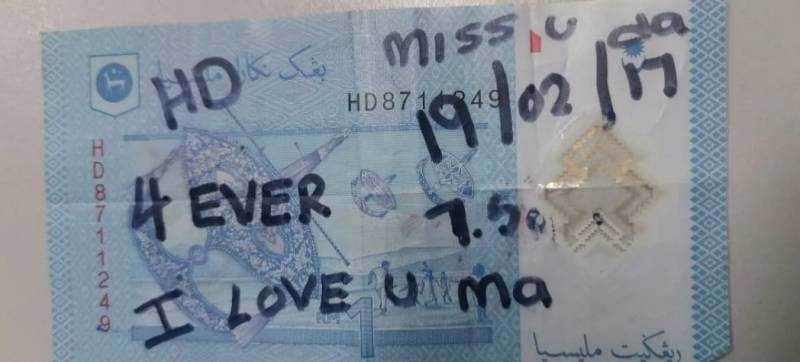 MISS U da
بڠک نݢارا
HD
HD8711249
19/02/17
HD8711249
4 EVER
7.50
I LOVE U ma
1
رڠݢيت مليسيا